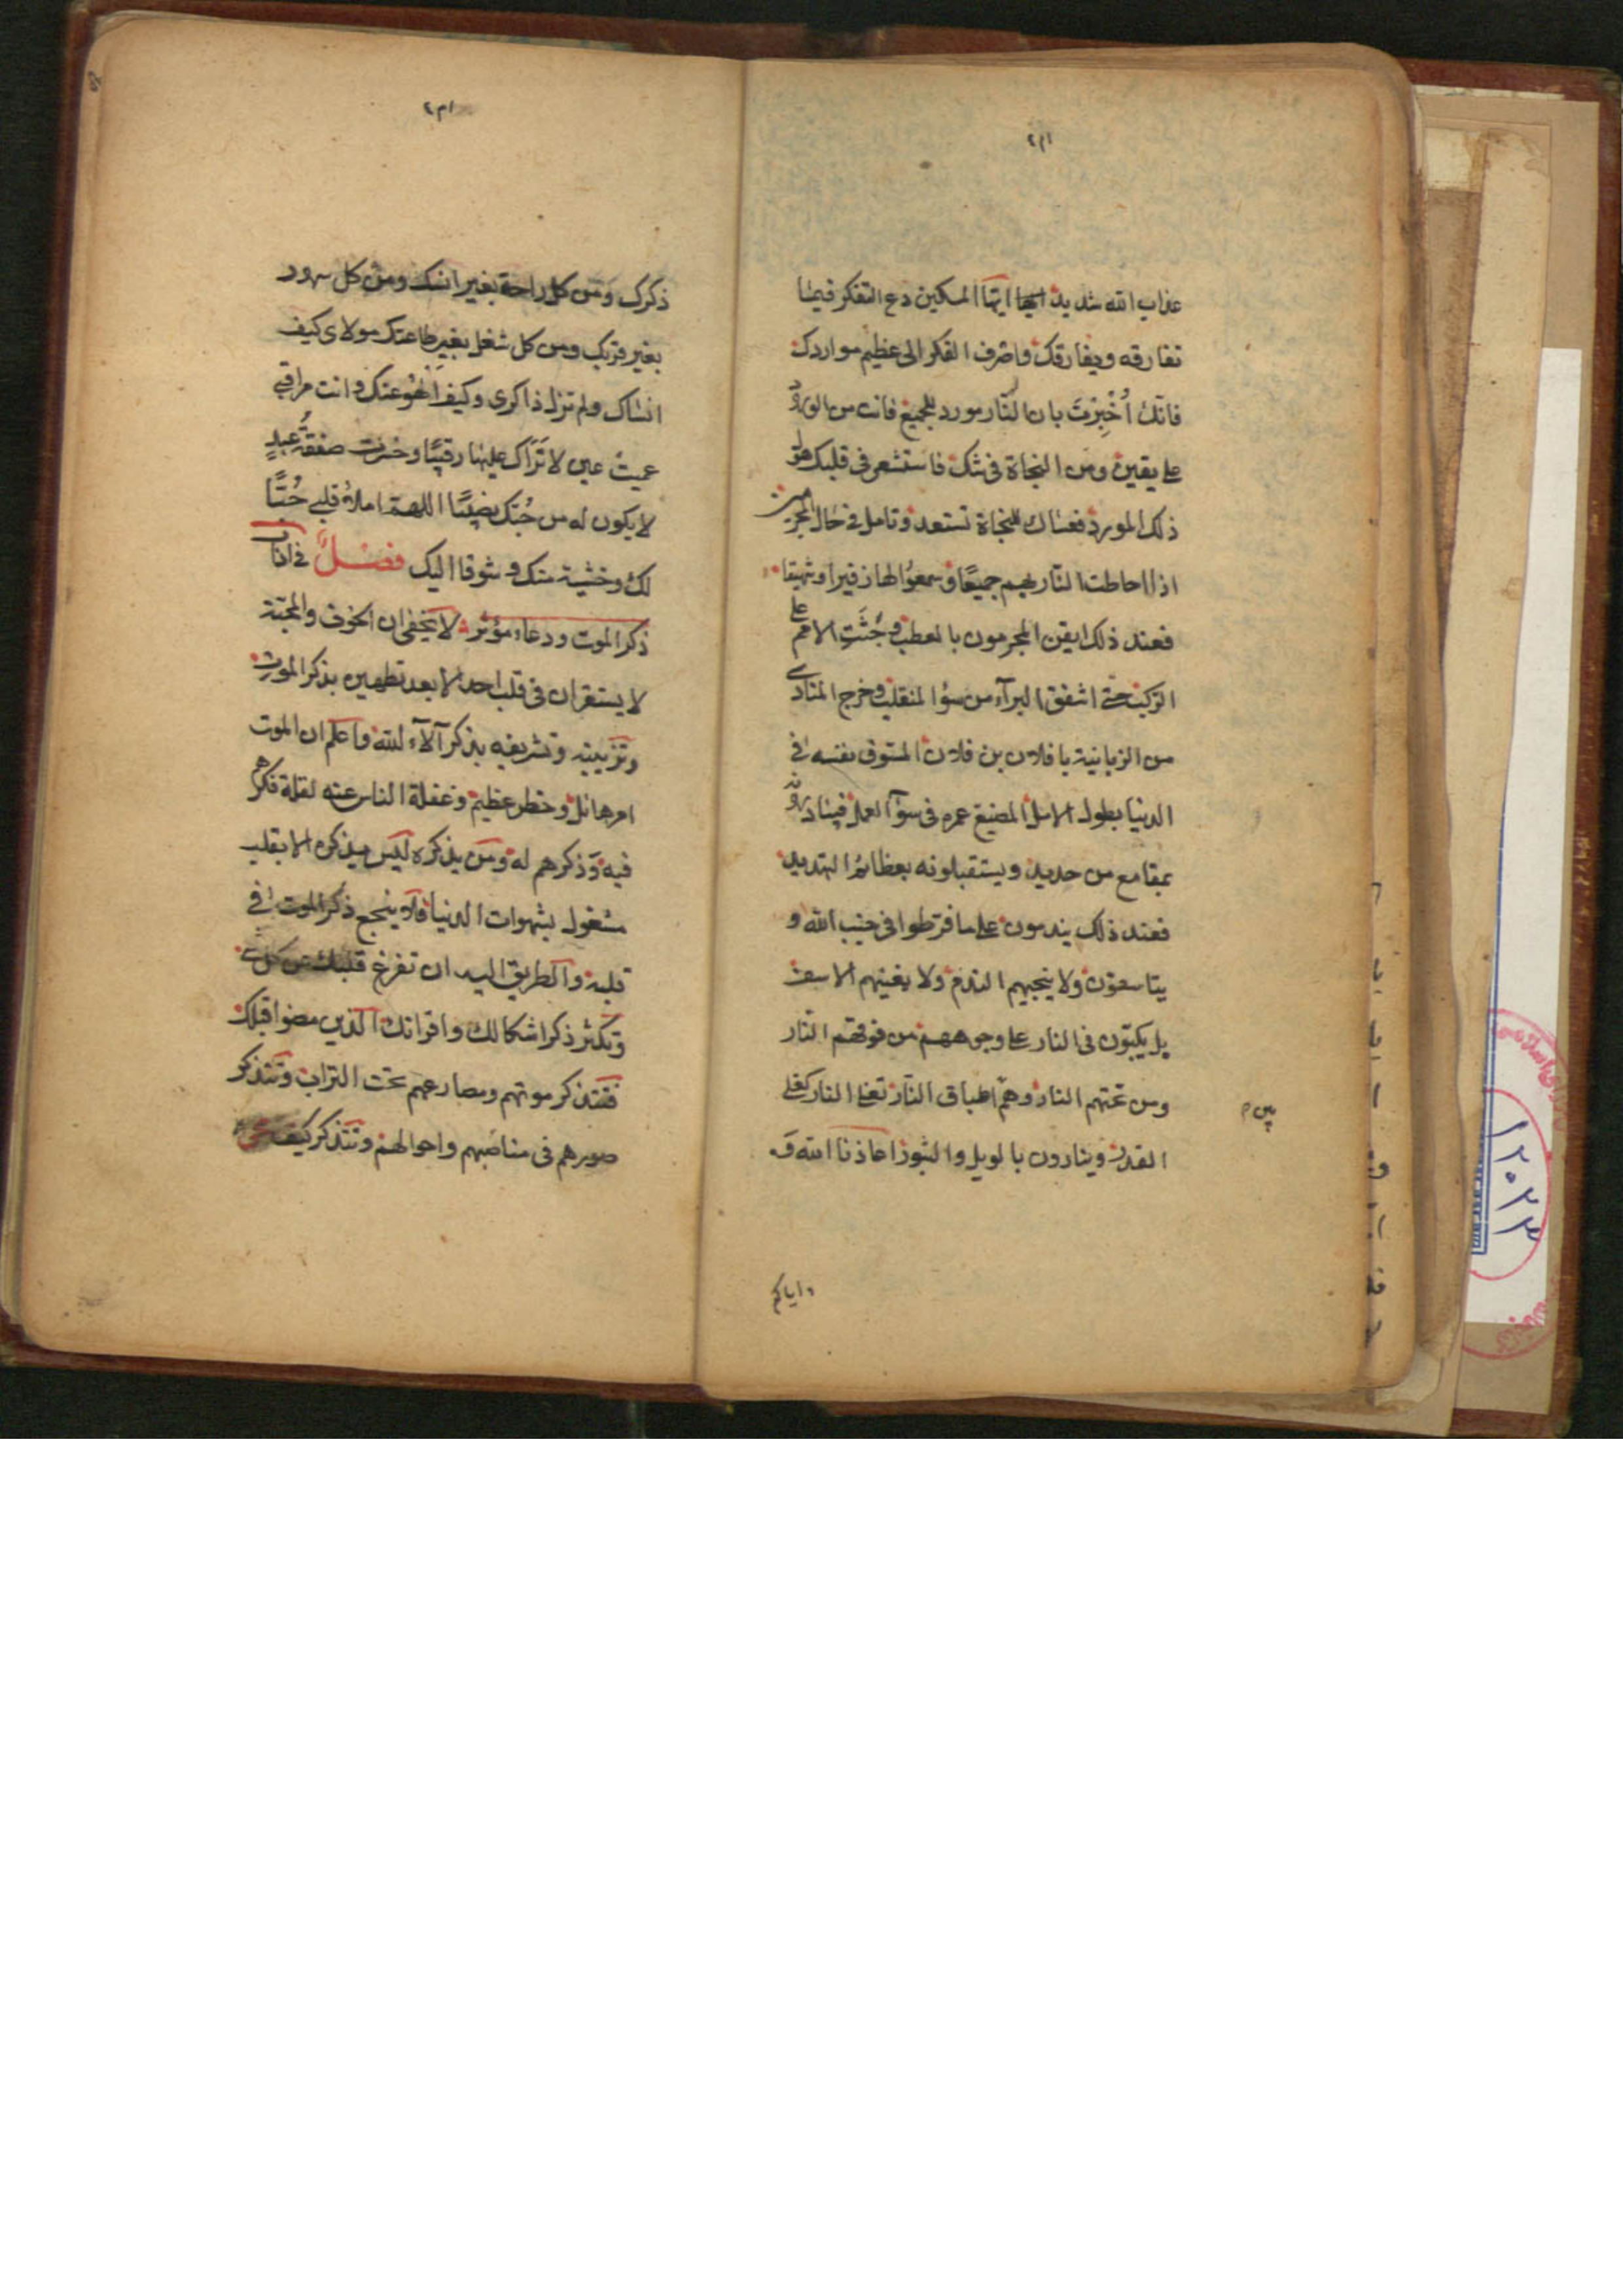 عذاب الله شديد ايها المسكين دع التفكر فيما
تفارقه ويفارقك واصرف الفكر الى عظيم مواردك
فانك أُخْبِرْتَ بان النّار مورد للجميع فانت من الورود
على يقين ومن النجاة في شك فاستشعر في قلبك هول
ذلك المورد فعساك للنجاة تستعد وتامل في حال المجرمين
اذا احاطت النّار بهم جميعًا وسمعوا لها زفيرا وشهيقا
فعند ذلك ايقن المجرمون بالعطب وجُثَّتِ الامم على
الركب حتى اشفق البرآء من سوء المنقلب وخرج المنادى
من الزبانية يا فلان بن فلان المسوف نفسه في
الدنيا بطول الامل المضيع عمره في سوء العمل فيبادرونه
بمقامع من حديد ويستقبلونه بعظائم التهديد
فعند ذلك يندمون على ما فرّطوا في جنب الله و
يتاسفون ولا ينجيهم الندم ولا يغنيهم الاسف
بل يكبّون في النار على وجوههم من فوقهم النّار
ومن تحتهم النار وهم اطباق النّار تغلى النار كغلى
القدر وينادون بالويل والثبور اعاذنا الله و
واياكم
ذكرك ومن كل راحة بغير انسك ومن كل سرور
بغير قربك ومن كل شغل بغير طاعتك مولاى كيف
انساك ولم تزل ذاكرى وكيف الهو عنك وانت مراقبي
عميت عين لا تَرَاك عليها رقيبًا وخسرت صفقةُ عبدٍ
لا يكون له من حُبّك نصيبًا اللهمّ املأ قلبي حُبًّا
لك وخشية منك وشوقا اليك فصل في اداب
ذكر الموت ودعاء مؤثر لا يخفى ان الخوف والمحبّة
لا يستقران في قلب احد الا بعد تطهيره بذكر الموت
وتزيينه وتشريفه بذكر آلاء الله واعلم ان الموت
امر هائل وخطر عظيم وغفلة الناس عنه لقلة فكرهم
فيه وذكرهم له ومن يذكره ليس يذكره الا بقلب
مشغول بشهوات الدنيا فلا ينجع ذكر الموت في
قلبه والطريق اليه ان تفرغ قلبك عن كل شيء
وتكثر ذكر اشكالك واقرانك الذين مضوا قبلك
فتتذكر موتهم ومصارعهم تحت التراب وتتذكر
صورهم في مناصبهم واحوالهم وتتذكر كيف
١٢٠٢٣